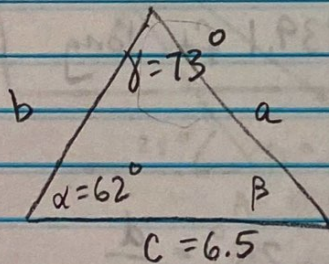 γ=73°
b
a
α=62°
β
C = 6.5